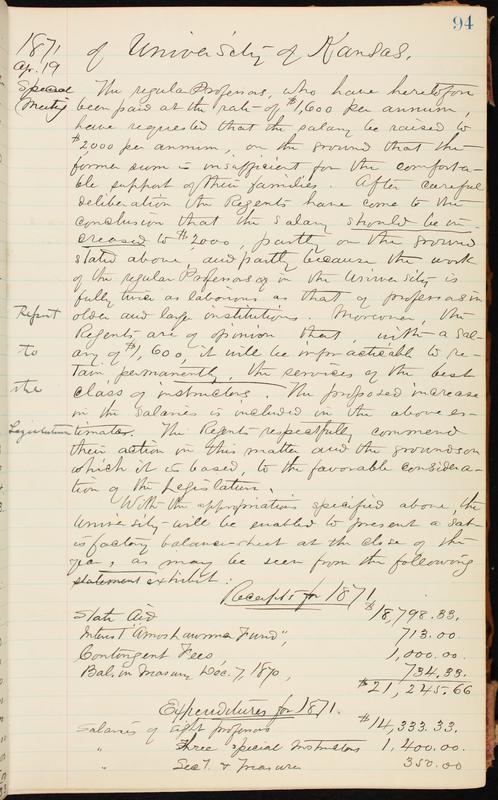 94
1871
Ap. 19
Special
Meeting
of University of Kansas.
The regular Professors, who have heretofore
been paid at the rate of $1,600 per annum,
have requested that the salary be raised to
$2,000 per annum, on the ground that the
former sum is insufficient for the comforta-
ble support of their families. After careful
deliberation the Regents have come to the
conclusion that the salary should be in-
creased to $2000, partly on the ground
stated above, and partly because the work
of the regular Professors of in the University is
fully twice as laborious as that of professors in
older and large institutions. Moreover, the
Regents are of opinion that, with a sal-
ary of $1,600, it will be impracticable to re-
tain permanently, the services of the best
class of instructors. The proposed increase
in the salaries is included in the above es-
timates. The Regents respectfully commend
their action in this matter and the grounds on
which it is based, to the favorable considera-
tion of the Legislature.
Report
to
the
Legislature
With the appropriations specified above, the
University will be enabled to present a sat-
isfactory balance-sheet at the close of the
year, as may be seen from the following
statement exhibit:
Receipts for 1871
State Aid $18,798.33.
Interest "Amos Lawrence Fund", 713.00.
Contingent Fees 1,000.00.
Bal. in Treasury Dec. 7, 1870, 734.33.
$21,245.66
Expenditures for 1871.
Salaries of eight professors $14,333.33.
" Three special Instructors 1,400.00.
" Sec'y. & Treasurer 350.00